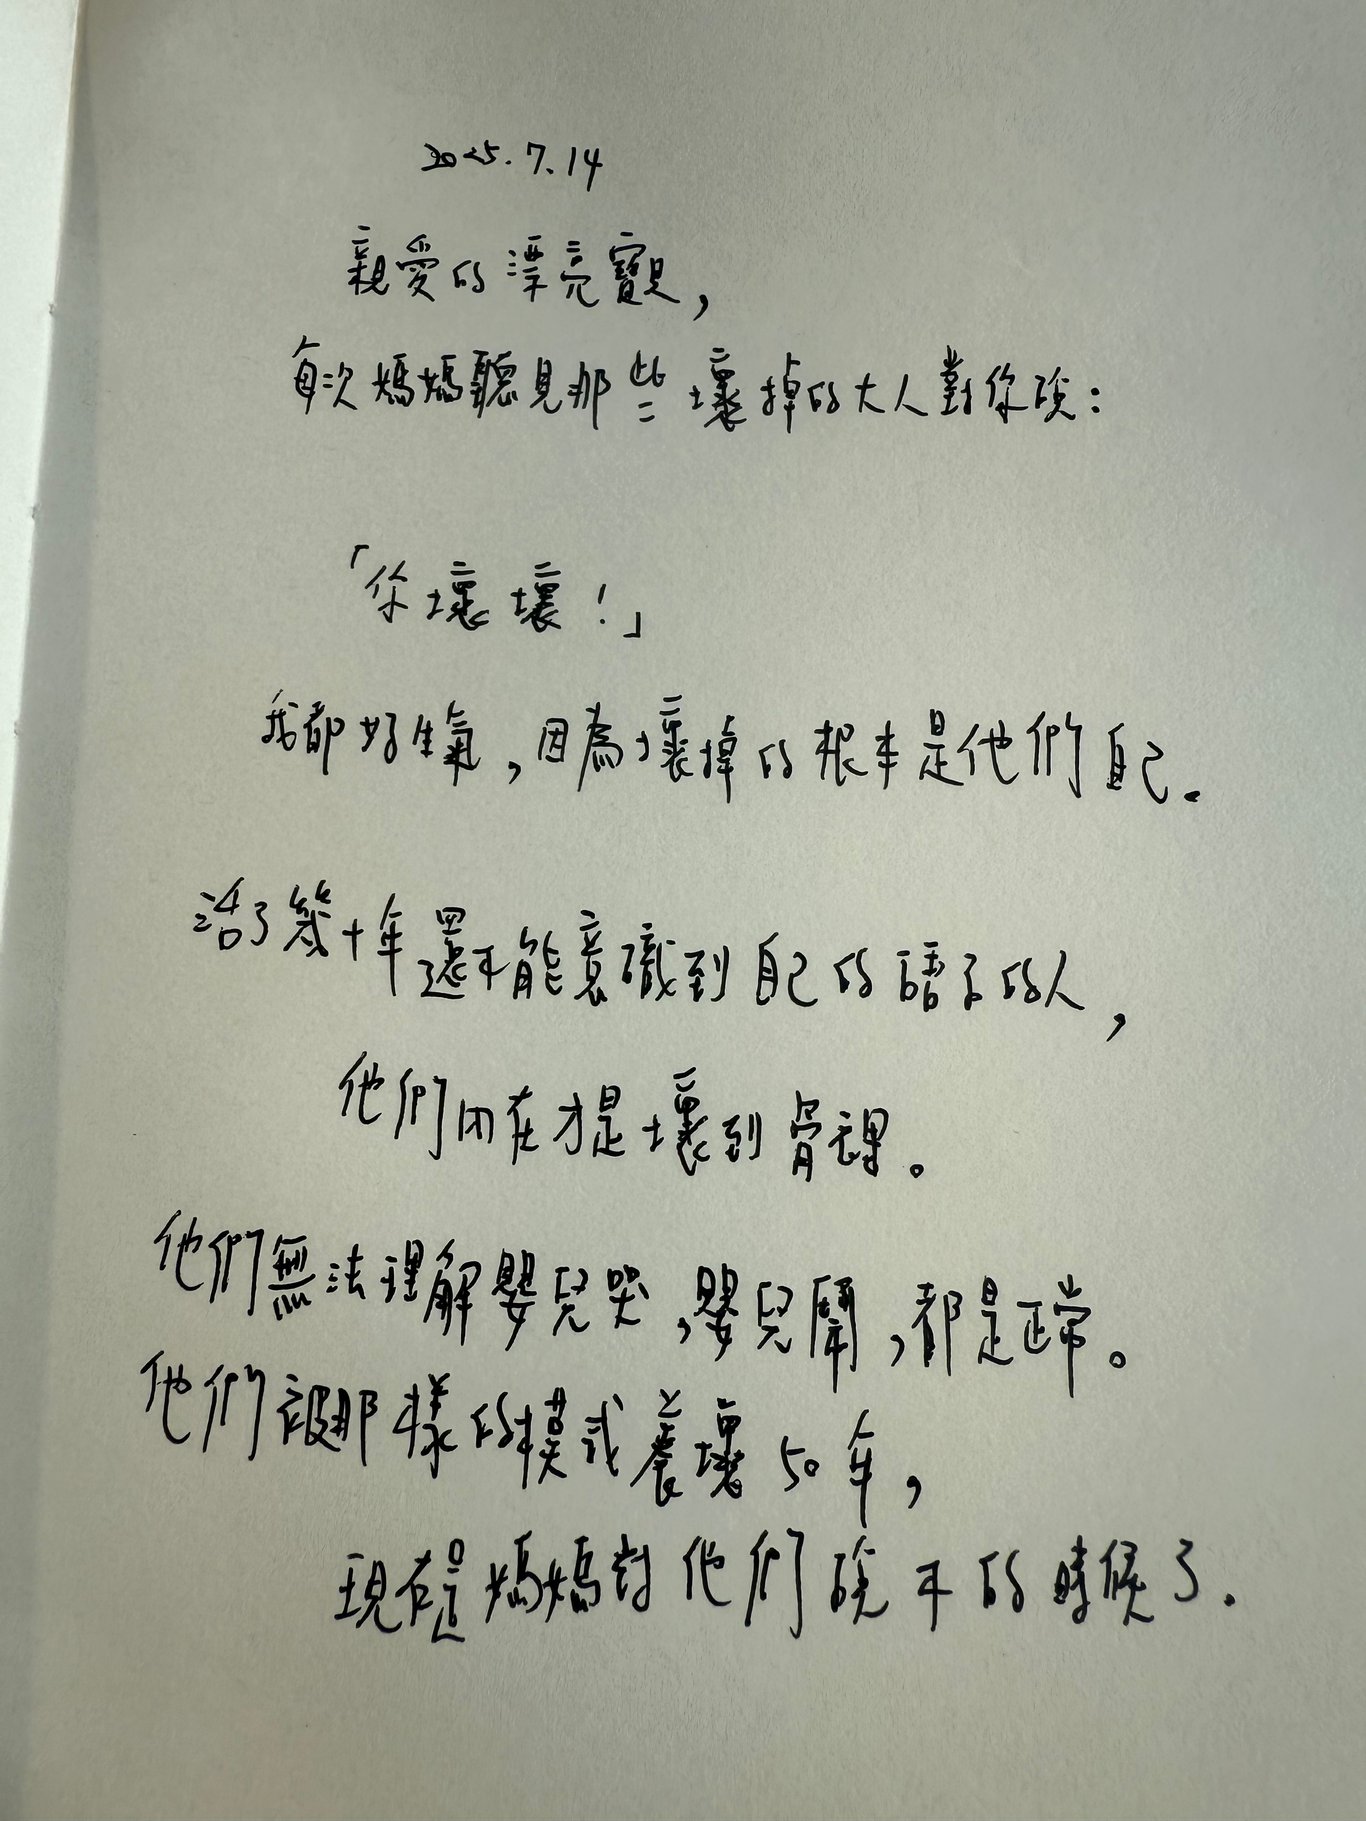 2025.7.14
親愛的漂亮寶貝,
每次媽媽聽見那些壞掉的大人對你說:
「你壞壞!」
我都好生氣,因為壞掉的根本是他們自己.
活了幾十年還不能意識到自己的語言的人,
他們內在才是壞到骨裡。
他們無法理解嬰兒哭,嬰兒鬧,都是正常。
他們被那樣的模式養壞50年,
現在是媽媽對他們說不的時候了.